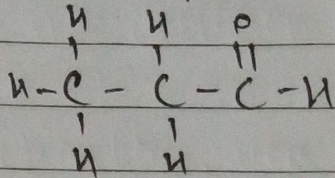 H H O
H - C - C - C - H
H H